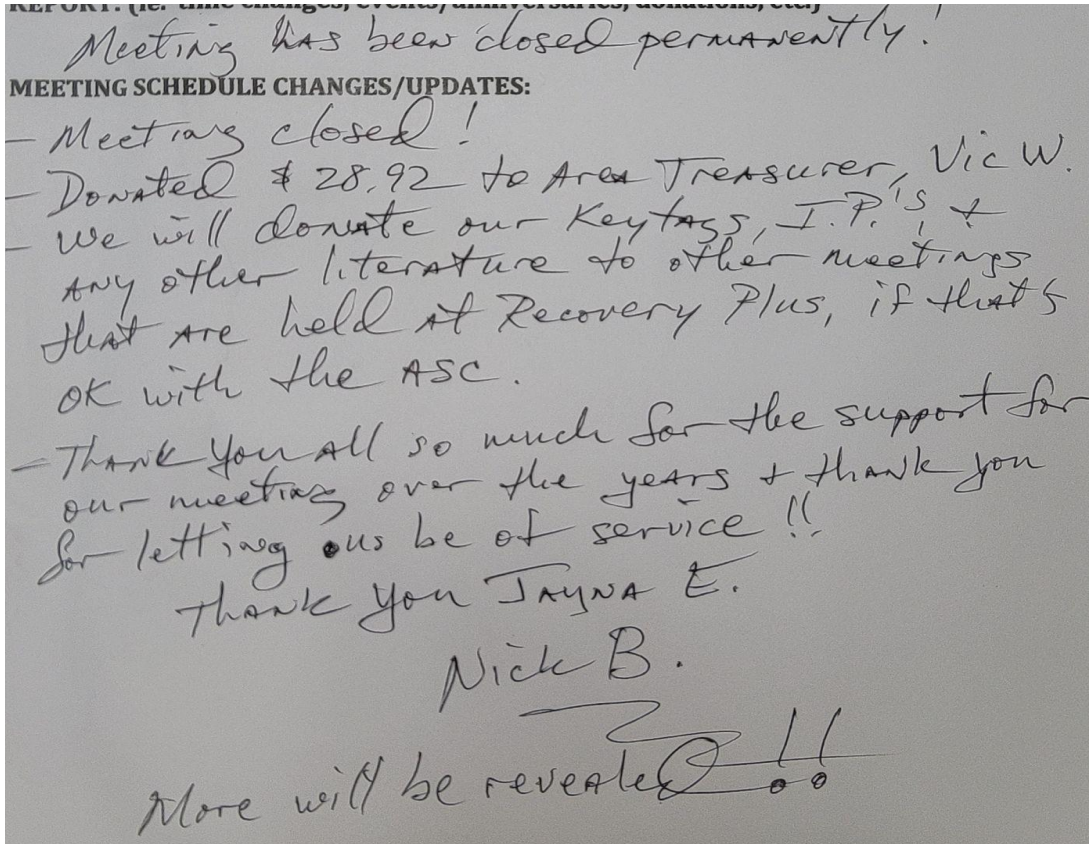 REPORT: (ie. time changes, events/anniversaries, donations, etc.)
Meeting has been closed permanently!
MEETING SCHEDULE CHANGES/UPDATES:
- Meeting closed!
- Donated $28.92 to Area Treasurer, Vic W.
- We will donate our Keytags, I.P.'s, +
Any other literature to other meetings
that are held at Recovery Plus, if that's
OK with the ASC.
- Thank You All so much for the support for
our meeting over the years + thank you
for letting us be of service!!
Thank You Jayna E.
Nick B.
More will be revealed!!